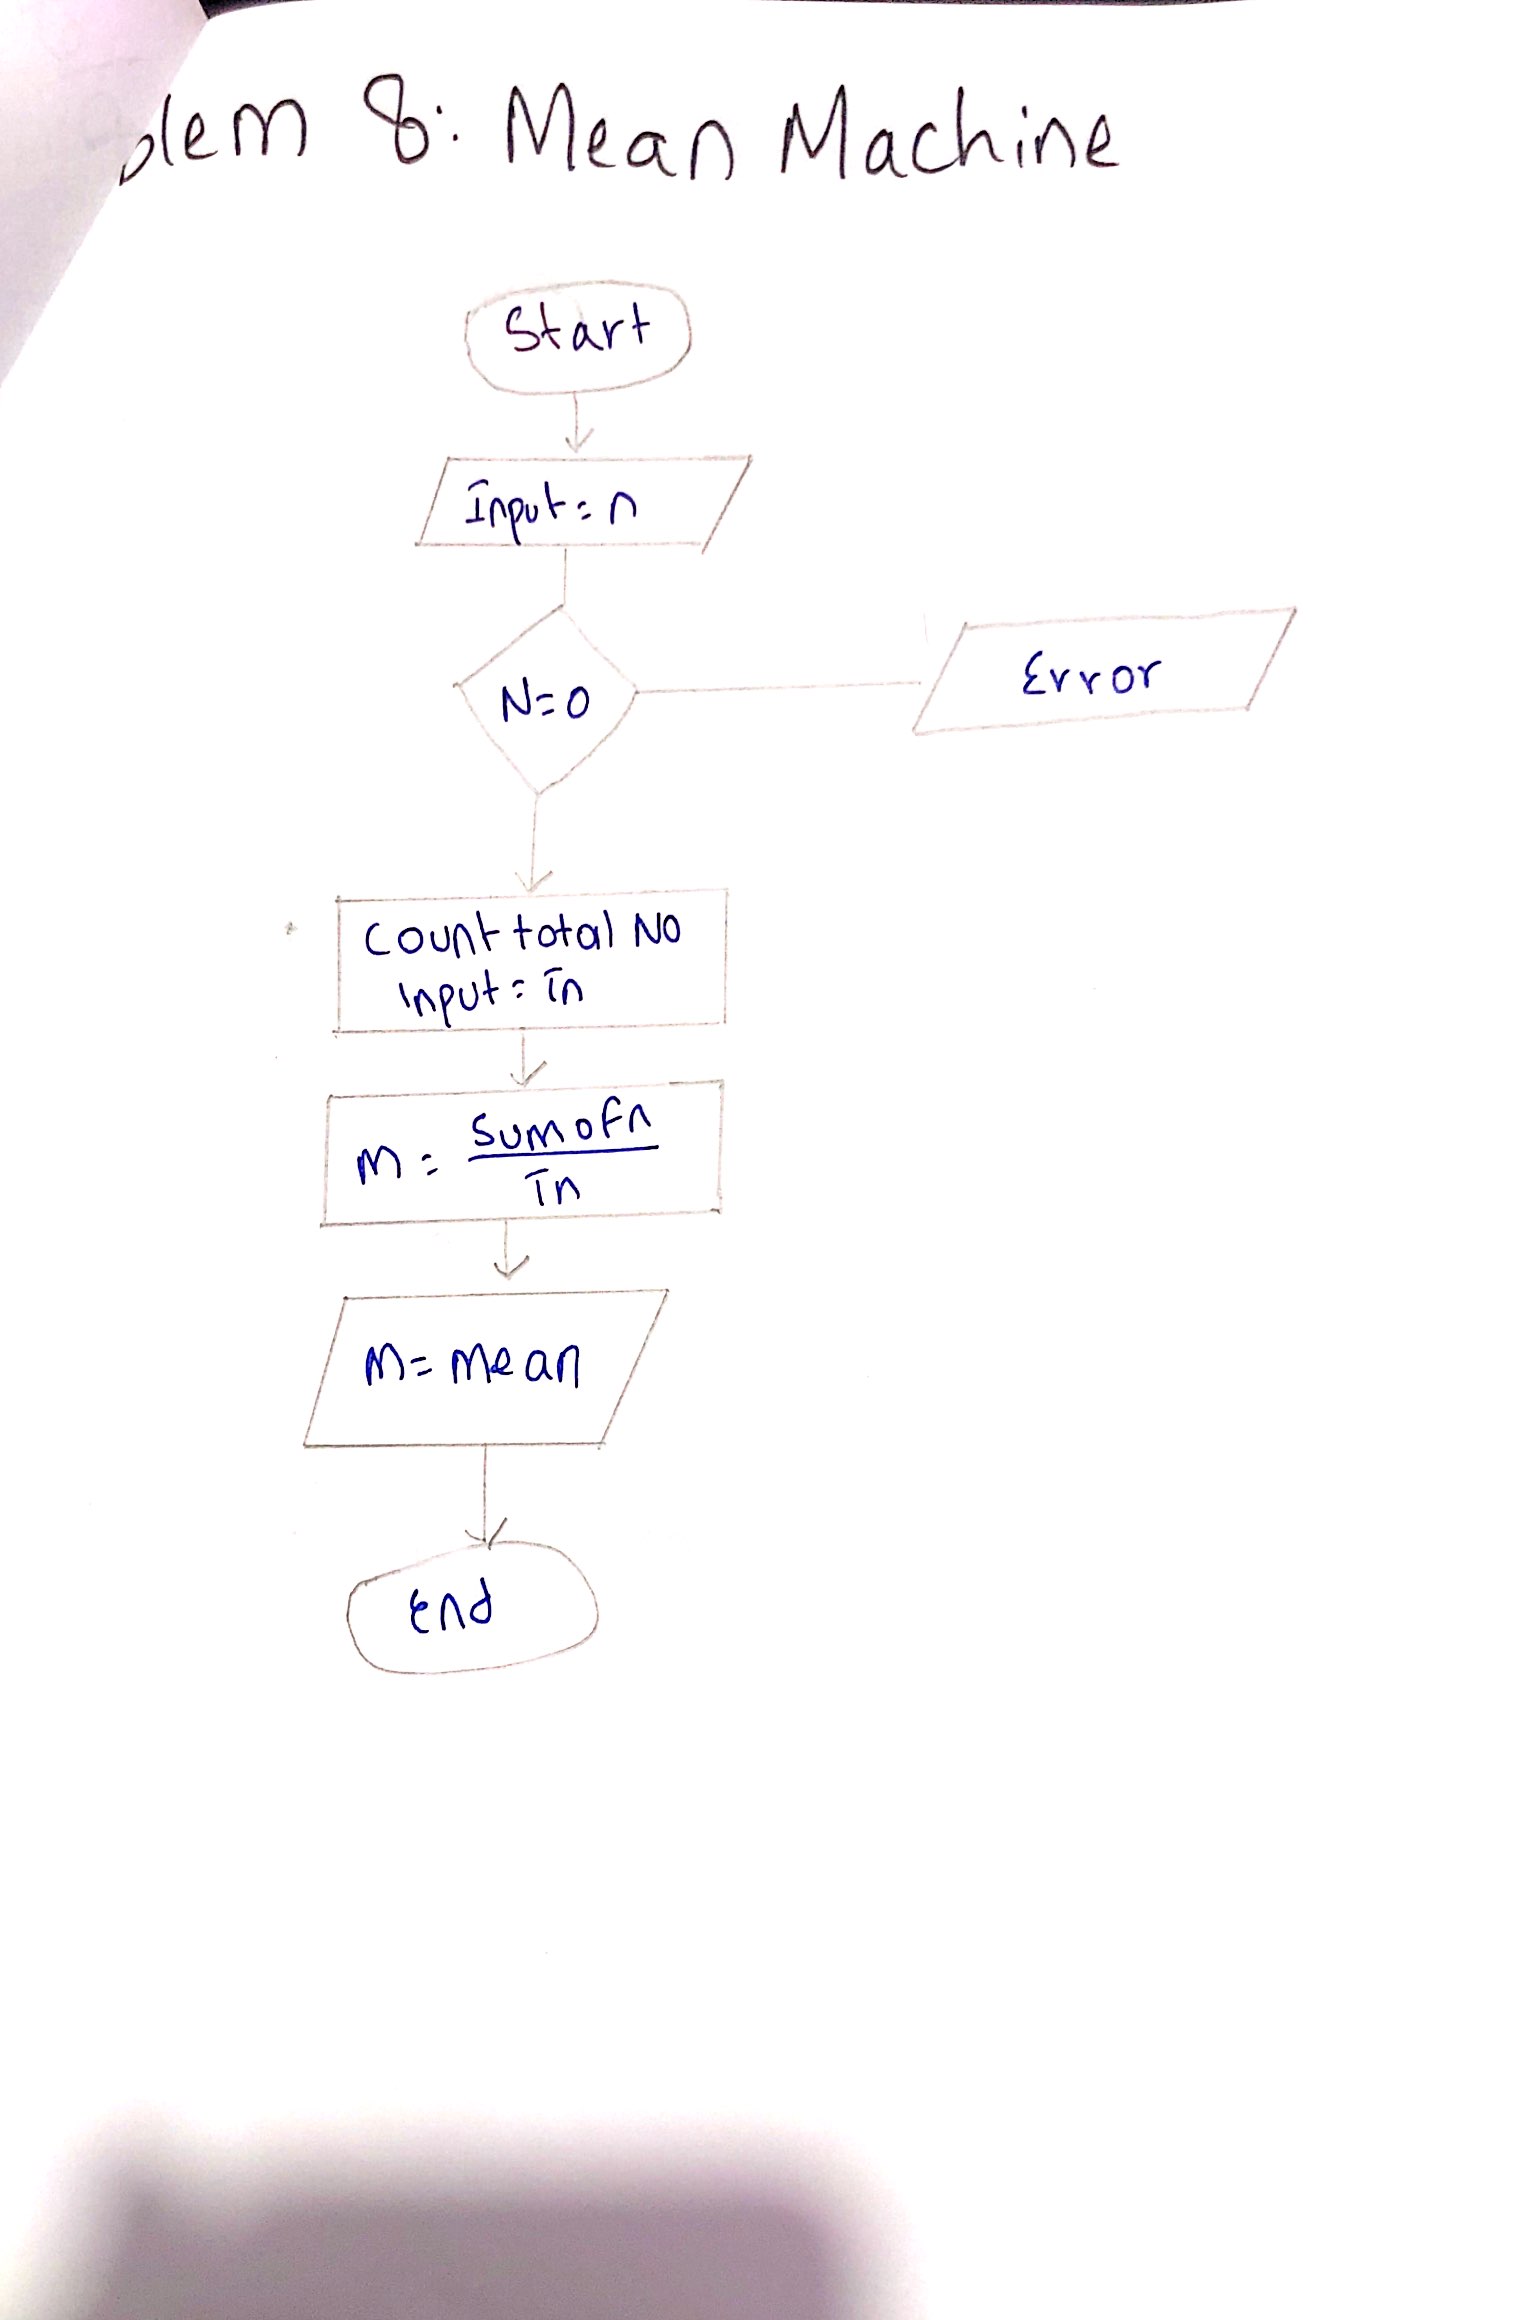 blem 8: Mean Machine
Start
Input = n
N=0
Error
Count total NO
Input = Tn
M = Sum of n
Tn
M = Mean
End